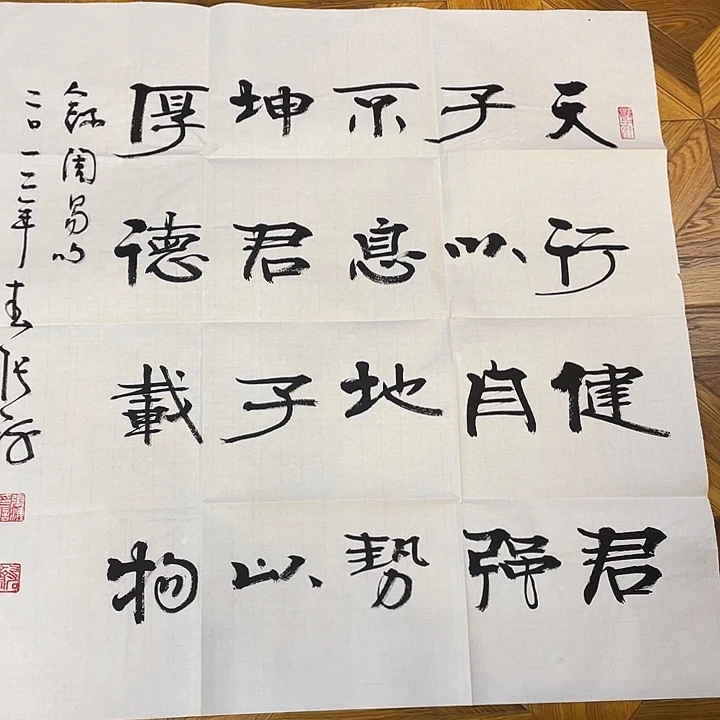 天行健君
子以自强
不息地勢
坤君子以
厚德載物
錄周易句
二〇一三年